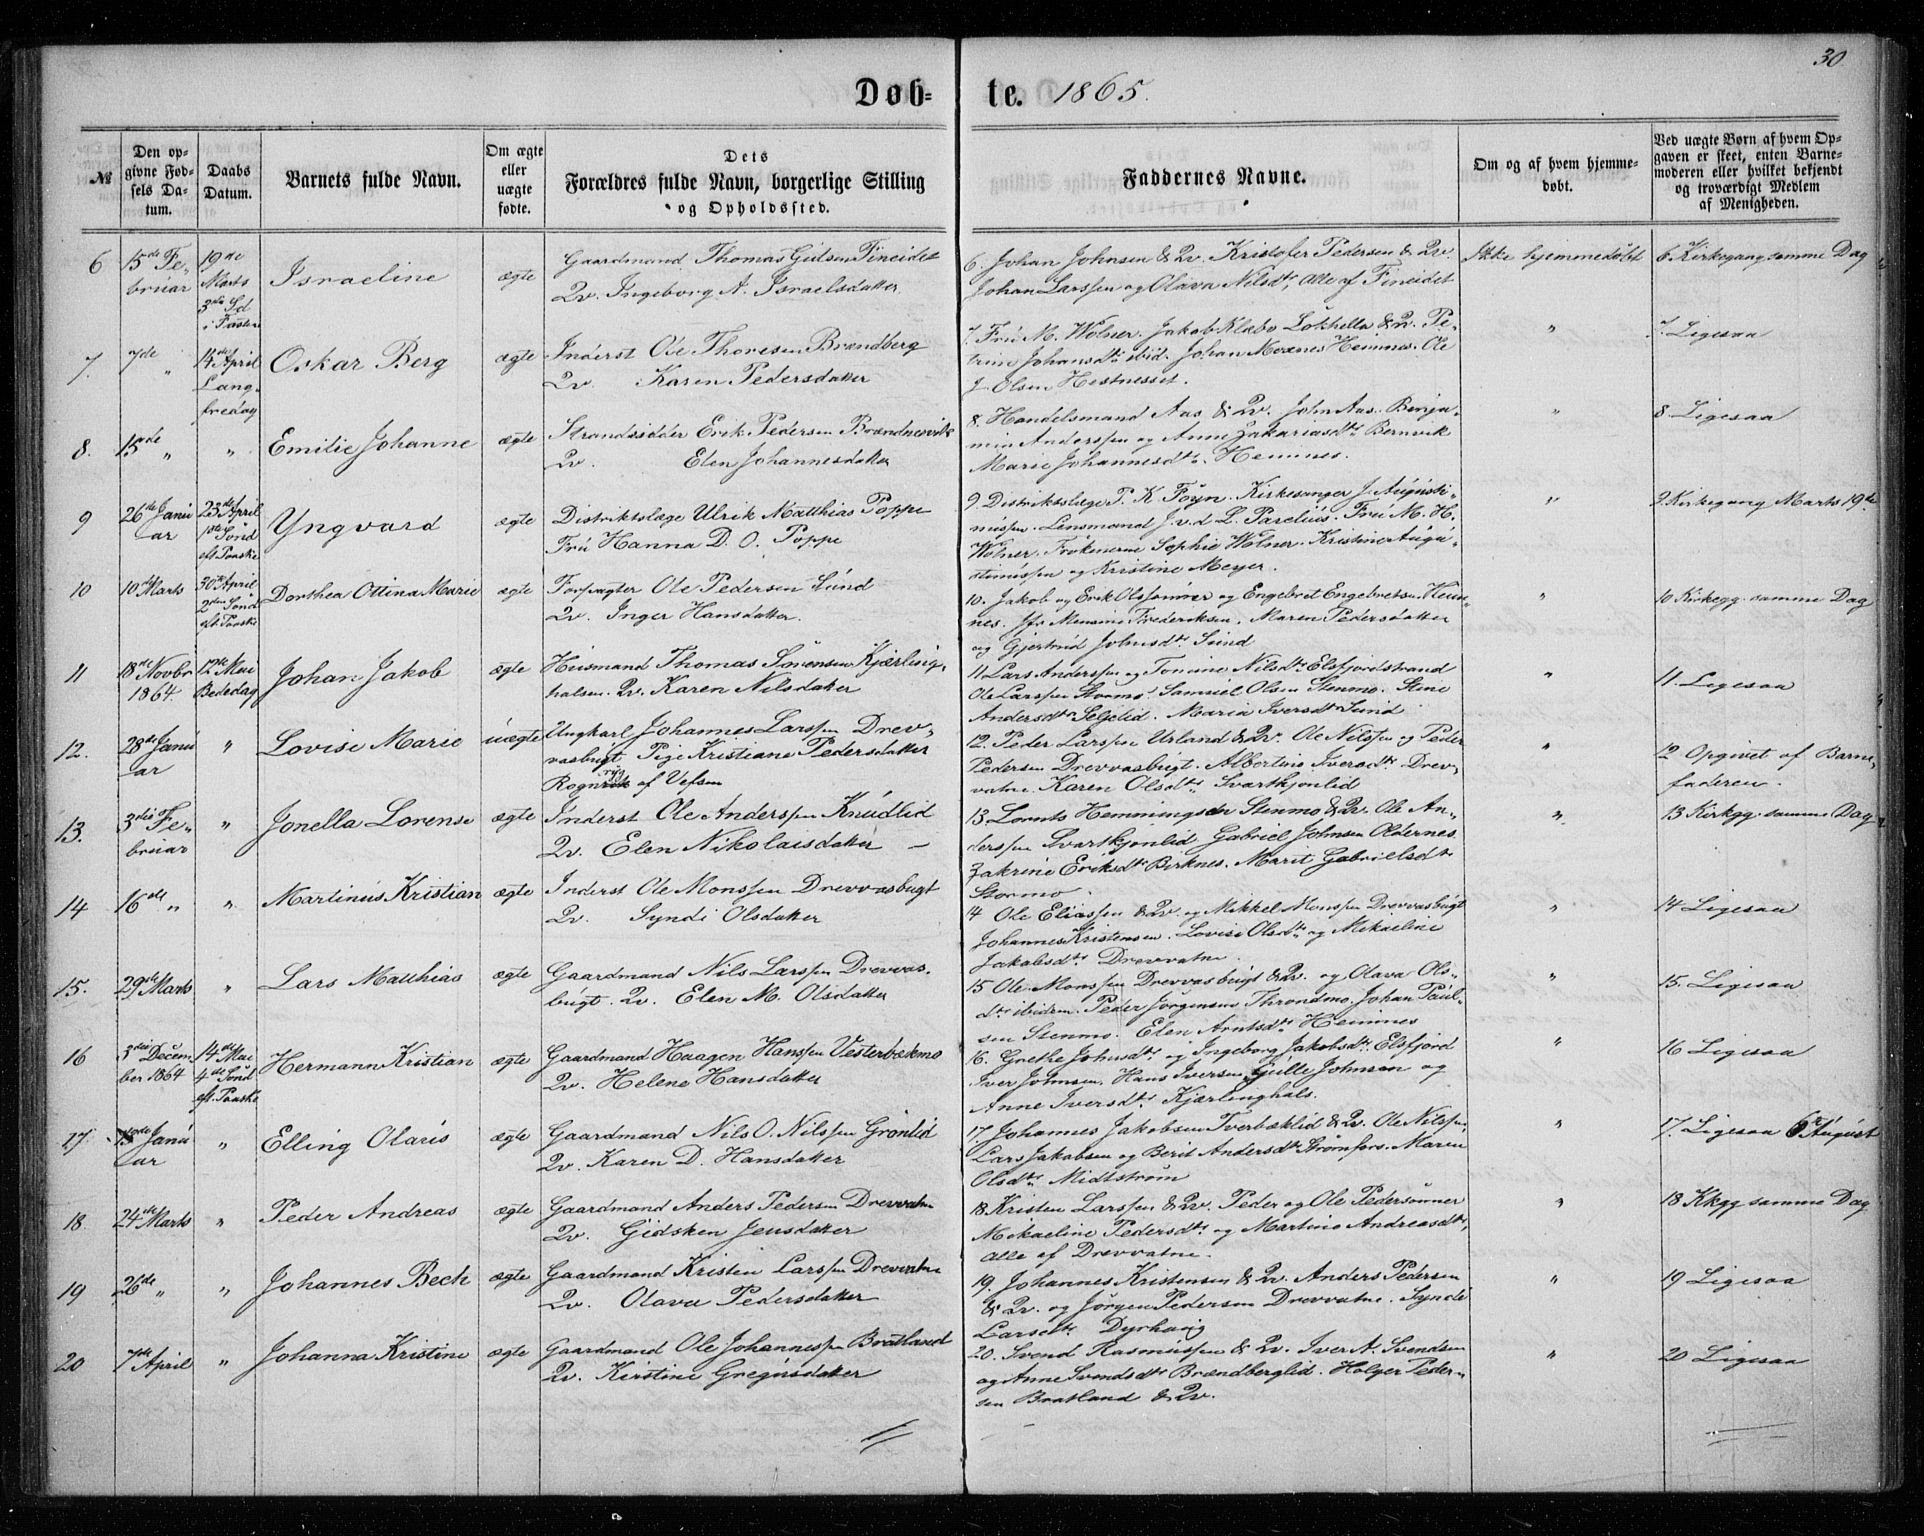 30
Døb-te. 1865.
№
Den opgivne Fødsels Datum.
Daabs Datum.
Barnets fulde Navn.
Om ægte eller uægte fødte.
Dets Forældres fulde Navn, borgerlige Stilling og Opholdssted.
Faddernes Navne.
Om og af hvem hjemmedøbt.
Ved uægte Børn af hvem Opgaven er skeet, enten Barnemoderen eller hvilket bekjendt og troværdigt Medlem af Menigheden.
6 15de Februar 19de Marts 3die Sd i Fasten Israeline ægte
Gaardmand Thomas Fineidet
Qv. Ingeborg A. Israelsdatter
6. Johan Johnsen & Qv. Kristofer Pedersen & Qv.
Johan Larssen og Olava Nilsdtr, Alle af Fineidet
Ikke hjemmedøbt
6 Kirkegang samme Dag
7 7de " 14de April Langfredag Oskar Berg ægte
Inderst Ole Thoresen Brændberg
Qv. Karen Pedersdatter
7. Fru M. Wolner. Jakob Klæbo & Qv. Pe-
trine Johansdtr ibid. Johan Hemnes. Ole
J. Olsen Hestnesset.
"
7. Ligesaa
8. 15de " " Emilie Johanne ægte
Strandsidder Erik Pedersen Brændnesvik
Qv. Elen Johannesdatter
8. Handelsmand Aas & Qv. John Aas. Benja-
min Anderssen og Anne Zakariasdtr Bernvik
Marie Johannesdtr. Hemnes.
"
8 Ligesaa
9 26de Januar 23de April 1ste Sønd eft. Paaske Yngvard ægte
Distriktslæge Ulrik Matthias Poppe
Fru Hanna D. O. Poppe
9 Distriktslæge P. K. Foyn. Kirkesanger J. Augusti-
nussen. Lensmand J. v. d. L. Parelius. Fru M. H.
Wolner. Frøknerne Sophie Wolner. Kristine Augu-
stinussen og Kristine Meyer.
"
9. Kirkegang Marts 19de
10 10de Marts 30te April 2den Sønd eft. Paaske Dorthea Ottina Marie ægte
Forpagter Ole Pedersen Sund
Qv. Inger Hansdatter.
10. Jakob og Erik Olssønner og Engebret Engebretsen Hem-
nes. Jfr Mensine Frederiksen. Maren Pedersdatter
og Gjertrud Johnsdtr Sund
"
10 Kirkeg. samme Dag
11 18de Novbr 1864. 12te Mai Bededag Johan Jakob ægte
Husmand Thomas Sørensen Kjærling-
halsen. Qv. Karen Nilsdatter
11 Lars Anderssen og Tomine Nilsdtr Elsfjordstrand
Ole Larssen Stormo. Samuel Olsen Stenmo. Stine
Andersdtr Seljelid. Maria Iversdtr Sund
"
11. Ligesaa
12. 28de Januar " Lovise Marie uægte
Ungkarl Johannes Larssen Drev-
vasbugt Pige Kristiane Pedersdatter
af Vefsen
12. Peder Larssen Urland & Qv. Ole Nilssen og Peder
Pedersen Drevvasbugt. Albertine Iversdtr Drev-
vatne. Karen Olsdtr Svartkjonlid
"
12 Opgivet af Barne-
faderen.
13. 3die Februar " Jonella Lorense ægte
Inderst Ole Anderssen Knudlid
Qv. Elen Nikolaisdatter
13 Lornts Hemmingsen Stenmo & Qv. Ole An-
derssen Svartkjonlid Gabriel Johnsen Oldernes
Zakrine Eriksdtr Birknes. Marit Gabrielsdtr
Stormo.
"
13 Kirkgg. samme Dag
14 16de " " Martinus Kristian ægte
Inderst Ole Monssen Drevvasbugt
Qv. Syndi Olsdatter
14 Ole Eliassen & Qv. og Mikkel Monssen Drevvasbugt
Johannes Kristensen. Lovise Olsdtr og Mikaeline
Jakobsdtr Drevvatne.
"
14 Ligesaa
15. 29de Marts " Lars Matthias ægte
Gaardmand Nils Larssen Drevvas-
bugt. Qv. Elen M. Olsdatter
15 Ole Monssen Drevvasbugt & Qv. og Olava Ols-
dtr ibidem. Peder Jørgensen Throndmo. Johan Paul-
sen Stenmo. Elen Arntsdtr Hemnes
"
15. Ligesaa
16 3die December 1864 14de Mai 4de Sønd eft. Paaske Hermann Kristian ægte
Gaardmand Haagen Hanssen Vesterbækmo
Qv. Helene Hansdatter
16. Grethe Johnsdtr og Ingeborg Jakobsdtr Elsfjord
Iver Johnsen. Hans Iversen Gulle Johnsen og
Anne Iversdtr Kjærlinghals.
"
16 Ligesaa
17. Januar " Elling Olaris ægte
Gaardmand Nils O. Nilssen Grønlid
Qv. Karen D. Hansdatter
17. Johannes Jakobsen Tverbæklid & Qv. Ole Nilssen,
Lars Jakobsen og Berit Andersdtr Strømfors. Maren
Olsdtr Midtstrøm
"
17. Ligesaa 6te August
18. 24de Marts " Peder Andreas ægte
Gaardmand Anders Pedersen Drevvatn
Qv. Gidsken Jensdatter
18 Kristen Larssen & Qv. Peder og Ole Pedersønner
Mikaeline Pedersdtr og Martine Andreasdtr,
Alle af Drevvatne.
"
18 Kkgg samme Dag
19 26de " " Johannes Bech ægte
Gaardmand Kristen Larssen Drevvatne
Qv. Olava Pedersdatter
19. Johannes Kristensen & Qv. Anders Pedersen
& Qv. og Jørgen Pedersen Drevvatne. Synde
Larsdtr Dyrhaug
"
19 Ligesaa
20 7de April " Johanna Kristine ægte
Gaardmand Ole Johannessen Bratland
Qv. Kirstine Gregusdatter
20. Svend Rasmussen & Qv. Iver A. Svendsen
og Anne Svendsdtr Brændberglid. Holger Peder-
sen Bratland & Qv.
"
20 Ligesaa